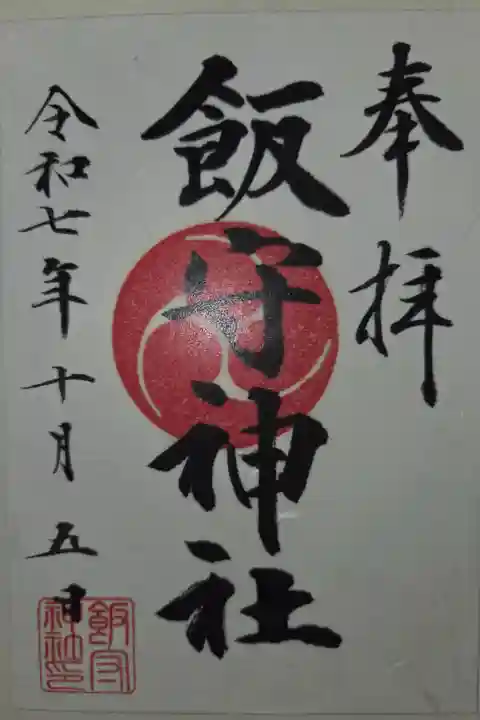 奉拝
飯守神社
令和七年十月五日
飯守
神社印